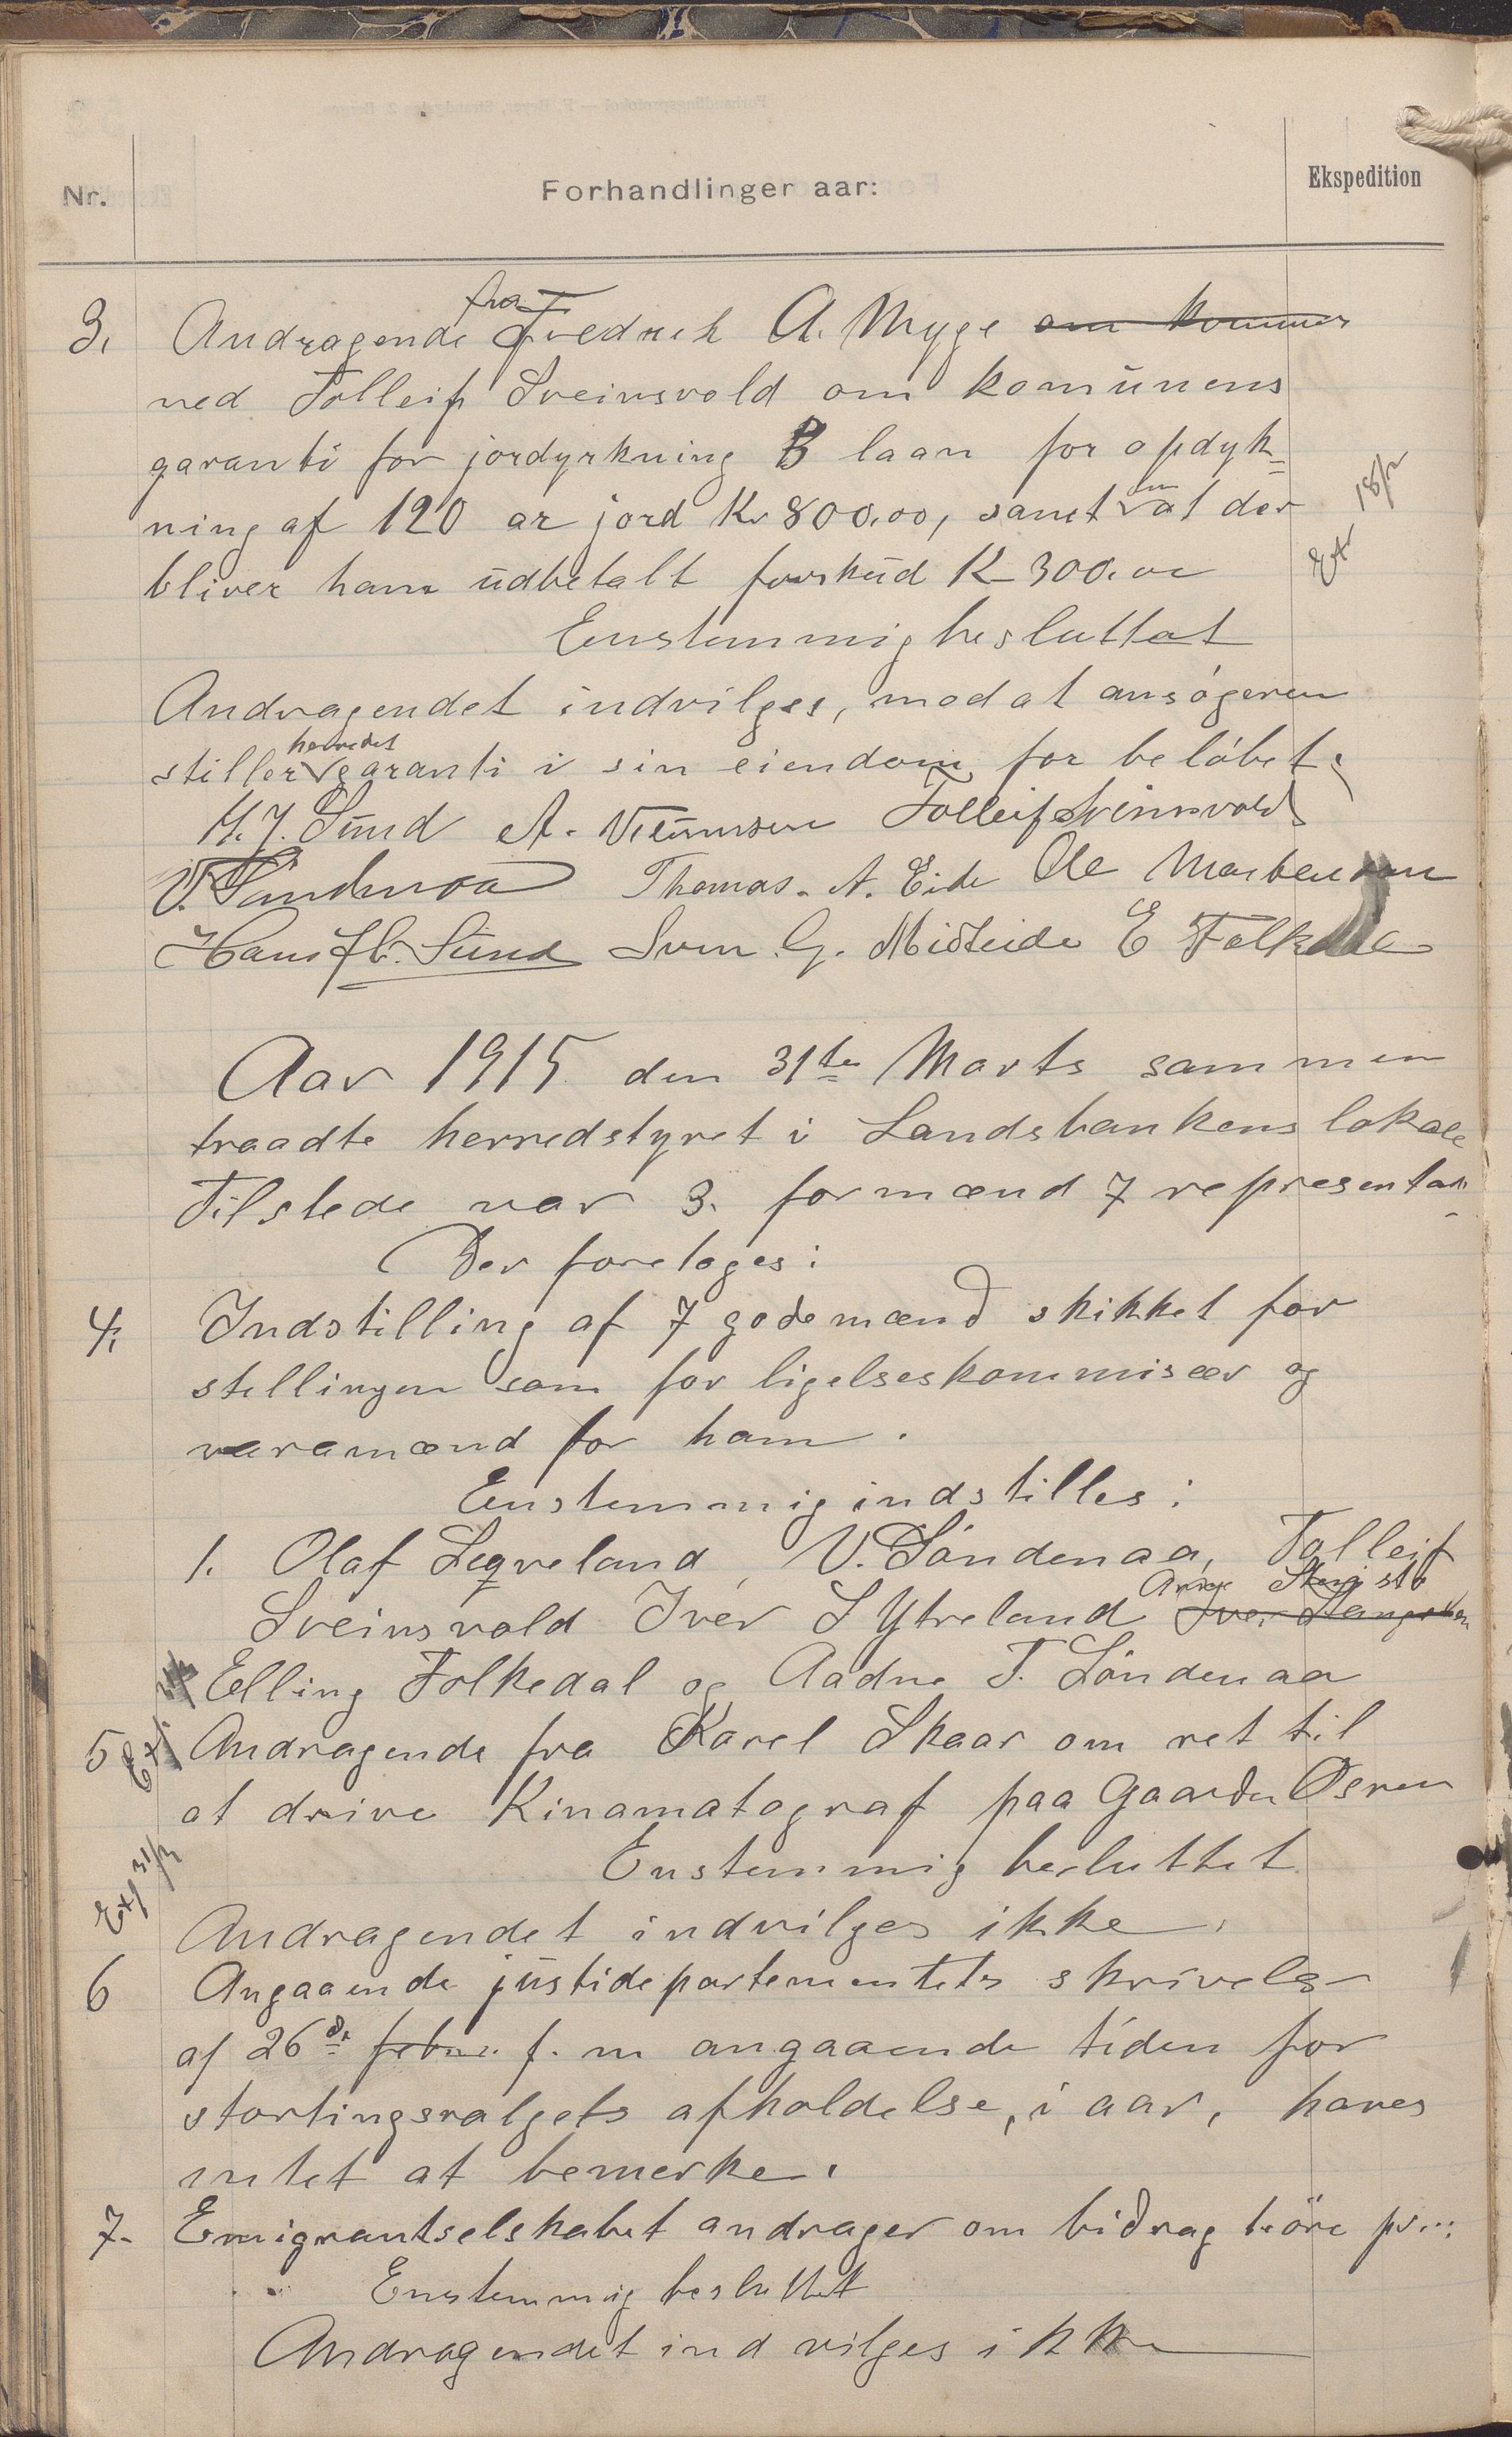 Nr.
Forhandlinger aar:
Ekspedition
3. Andragende fra Fredrek A. Myge om kommer
ved Tolleif Sveinsvold om komunens
garanti for jordyrkning B laan for opdyk=
ning af 120 ar jord Kr 800.00, samt om at der
bliver ham udbetalt forskud K 300.00
Enstemmig besluttat
Andragendet indvilges, mod at ansøgeren
stiller herredet garanti i sin eiendom for beløbet.
Exp 18/2
H. J. Sund A. Tolleif Sveinsvold
V. Søndenaa Thomas. A. Eide Ole Martenson
Hans H. Sund Sven G. Midteide E Folkedal
Aar 1915 den 31te Marts sammen
traadte herredstyret i Landsbankens lokale
Tilstede var 3. formænd 7 representan
Der foretoges:
4. Indstilling af 7 godemænd skikket for
stellingen som for ligelseskommisær og
varamænd for ham.
Enstemmig indstilles:
1. Olaf Legveland, V. Søndenaa, Tolleif
Sveinsvold Iver S Ytreland Stengsto Iver
Elling Folkedal og Aadne T. Søndenaa
Exp 31/3
5 Andragende fra Karel Skaar om ret til
at drive Kinamatograf paa Gaarden Osren
Enstemmig besluttet
Exp 31/3
Andragendet indvilges ikke.
6 Angaaende justidepartementets skrivelse
af 26de febru. f. m angaaende tiden for
stortingsvalgets afholdelse, i aar, haves
intet at bemerke.
7. Emigrantselskabet andrager om bidrag
Enstemmig besluttet
Andragendet indvilges ikke